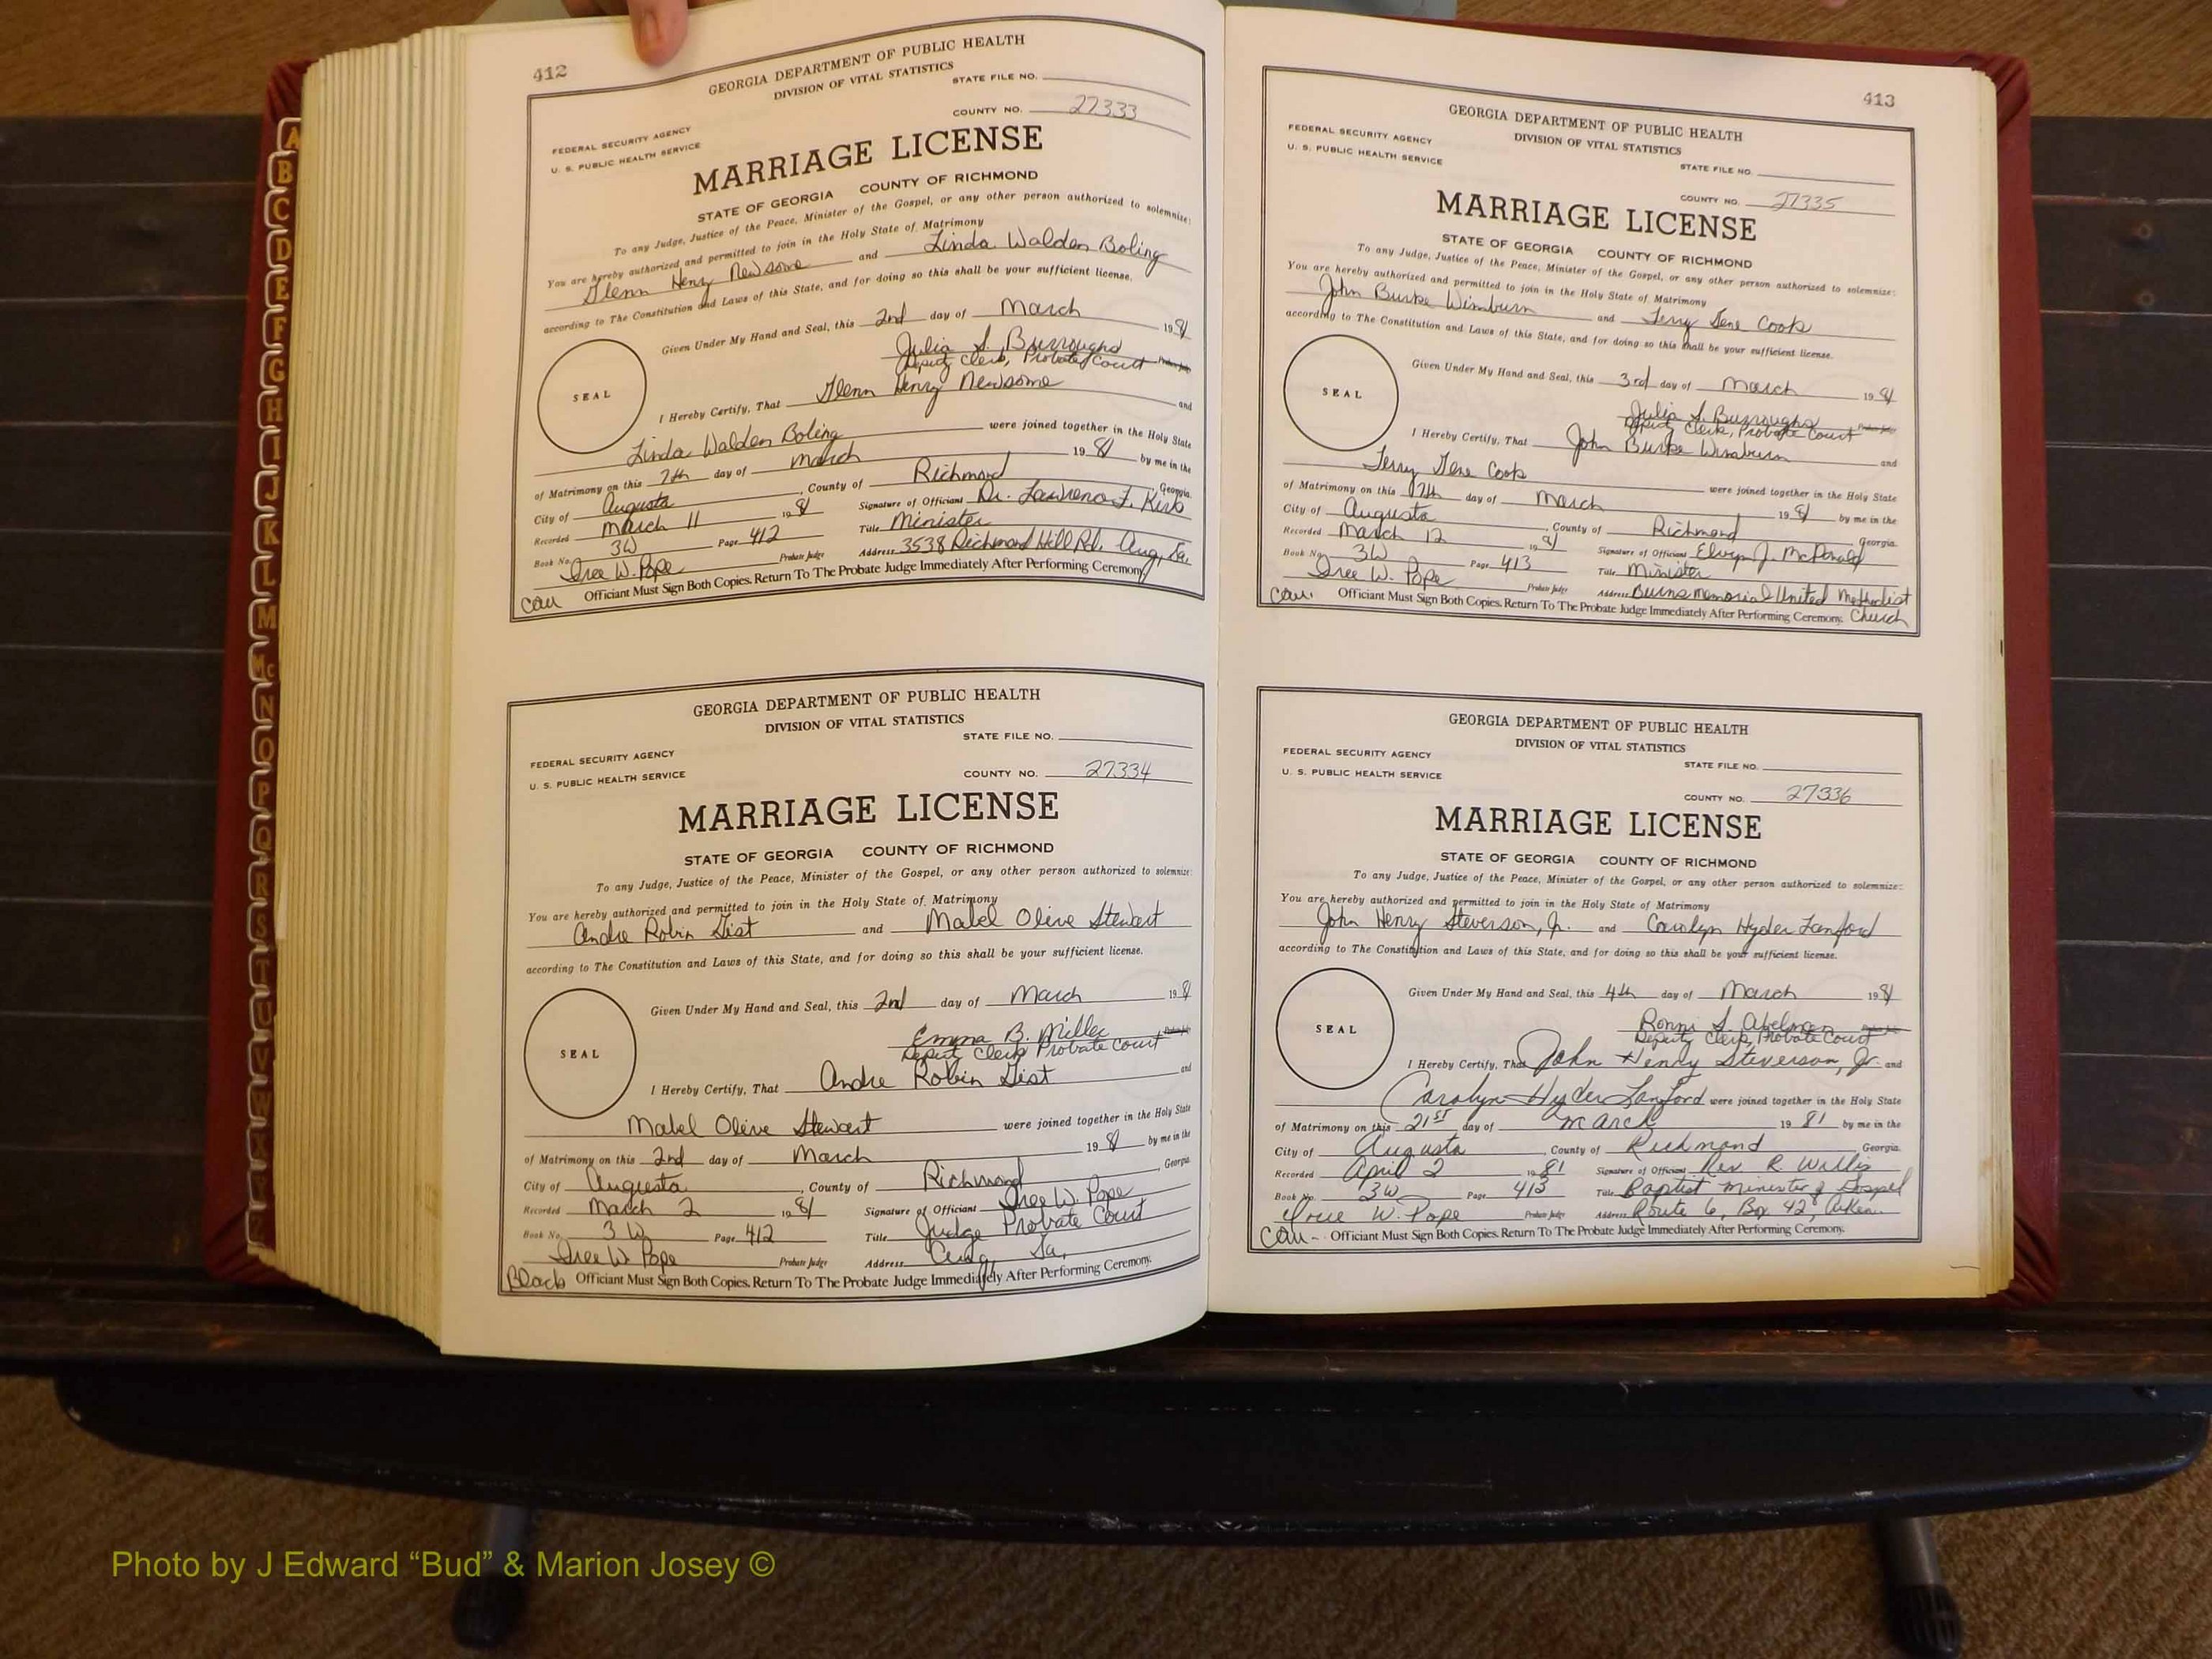 A
B
C
D
E
F
G
H
I
J
K
L
M
Mc
N
O
P
Q
R
S
T
U
V
W
412
GEORGIA DEPARTMENT OF PUBLIC HEALTH
DIVISION OF VITAL STATISTICS
STATE FILE NO.
COUNTY NO. 27333
FEDERAL SECURITY AGENCY
U. S. PUBLIC HEALTH SERVICE
MARRIAGE LICENSE
STATE OF GEORGIA COUNTY OF RICHMOND
To any Judge, Justice of the Peace, Minister of the Gospel, or any other person authorized to solemnize:
You are hereby authorized and permitted to join in the Holy State of Matrimony
Glenn Henry Newsome and Linda Walden Boling
according to The Constitution and Laws of this State, and for doing so this shall be your sufficient license.
Given Under My Hand and Seal, this 2nd day of March 1981
Julia S. Burroughs
Deputy Clerk, Probate Court Probate Judge
SEAL
I Hereby Certify, That Glenn Henry Newsome and
Linda Walden Boling were joined together in the Holy State
of Matrimony on this 7th day of March 1981 by me in the
City of Augusta, County of Richmond, Georgia.
Recorded March 11 1981 Signature of Officiant Dr. Lawrence F. Kirk
Book No. 3W Page 412 Title Minister
Iree W. Pope Probate Judge Address 3538 Richmond Hill Rd. Aug, Ga.
Cau Officiant Must Sign Both Copies. Return To The Probate Judge Immediately After Performing Ceremony.
GEORGIA DEPARTMENT OF PUBLIC HEALTH
DIVISION OF VITAL STATISTICS
STATE FILE NO.
FEDERAL SECURITY AGENCY
U. S. PUBLIC HEALTH SERVICE
COUNTY NO. 27334
MARRIAGE LICENSE
STATE OF GEORGIA COUNTY OF RICHMOND
To any Judge, Justice of the Peace, Minister of the Gospel, or any other person authorized to solemnize:
You are hereby authorized and permitted to join in the Holy State of Matrimony
Andre Robin Gist and Mabel Olive Stewart
according to The Constitution and Laws of this State, and for doing so this shall be your sufficient license.
Given Under My Hand and Seal, this 2nd day of March 1981
Emma B. Miller
Deputy Clerk Probate Court Probate Judge
SEAL
I Hereby Certify, That Andre Robin Gist and
Mabel Olive Stewart were joined together in the Holy State
of Matrimony on this 2nd day of March 1981 by me in the
City of Augusta, County of Richmond, Georgia
Recorded March 2 1981 Signature of Officiant Iree W. Pope
Book No. 3W Page 412 Title Judge Probate Court
Iree W. Pope Probate Judge Address Aug Ga,
Black Officiant Must Sign Both Copies. Return To The Probate Judge Immediately After Performing Ceremony.
413
GEORGIA DEPARTMENT OF PUBLIC HEALTH
DIVISION OF VITAL STATISTICS
FEDERAL SECURITY AGENCY
U. S. PUBLIC HEALTH SERVICE
STATE FILE NO.
COUNTY NO. 27335
MARRIAGE LICENSE
STATE OF GEORGIA COUNTY OF RICHMOND
To any Judge, Justice of the Peace, Minister of the Gospel, or any other person authorized to solemnize:
You are hereby authorized and permitted to join in the Holy State of Matrimony
John Burke Wimburn and Terry Gene Cook
according to The Constitution and Laws of this State, and for doing so this shall be your sufficient license.
Given Under My Hand and Seal, this 3rd day of March 1981
Julia S. Burroughs
Deputy Clerk, Probate Court Probate Judge
SEAL
I Hereby Certify, That John Burke Wimburn and
Terry Gene Cook were joined together in the Holy State
of Matrimony on this day of March 1981 by me in the
City of Augusta, County of Richmond, Georgia.
Recorded March 12 1981 Signature of Officiant Elwyn J. McDonald
Book No. 3W Page 413 Title Minister
Iree W. Pope Probate Judge Address Burns Memorial United Methodist
Cau. Officiant Must Sign Both Copies. Return To The Probate Judge Immediately After Performing Ceremony. Church
GEORGIA DEPARTMENT OF PUBLIC HEALTH
DIVISION OF VITAL STATISTICS
FEDERAL SECURITY AGENCY
U. S. PUBLIC HEALTH SERVICE
STATE FILE NO.
COUNTY NO. 27336
MARRIAGE LICENSE
STATE OF GEORGIA COUNTY OF RICHMOND
To any Judge, Justice of the Peace, Minister of the Gospel, or any other person authorized to solemnize:
You are hereby authorized and permitted to join in the Holy State of Matrimony
John Henry Steverson, Jr. and Carolyn Hyder Lanford
according to The Constitution and Laws of this State, and for doing so this shall be your sufficient license.
Given Under My Hand and Seal, this 4th day of March 1981
Ronni S. Abelman
Deputy Clerk, Probate Court Probate Judge
SEAL
I Hereby Certify, That John Henry Steverson, Jr. and
Carolyn Hyder Lanford were joined together in the Holy State
of Matrimony on this 21st day of March 1981 by me in the
City of Augusta, County of Richmond Georgia.
Recorded April 2 1981 Signature of Officiant Rev. R. Willis
Book No. 3W Page 413 Title Baptist Minister of Gospel
Iree W. Pope Probate Judge Address Route 6, Box 42, Aiken
Cau - Officiant Must Sign Both Copies. Return To The Probate Judge Immediately After Performing Ceremony.
Photo by J Edward “Bud” & Marion Josey ©